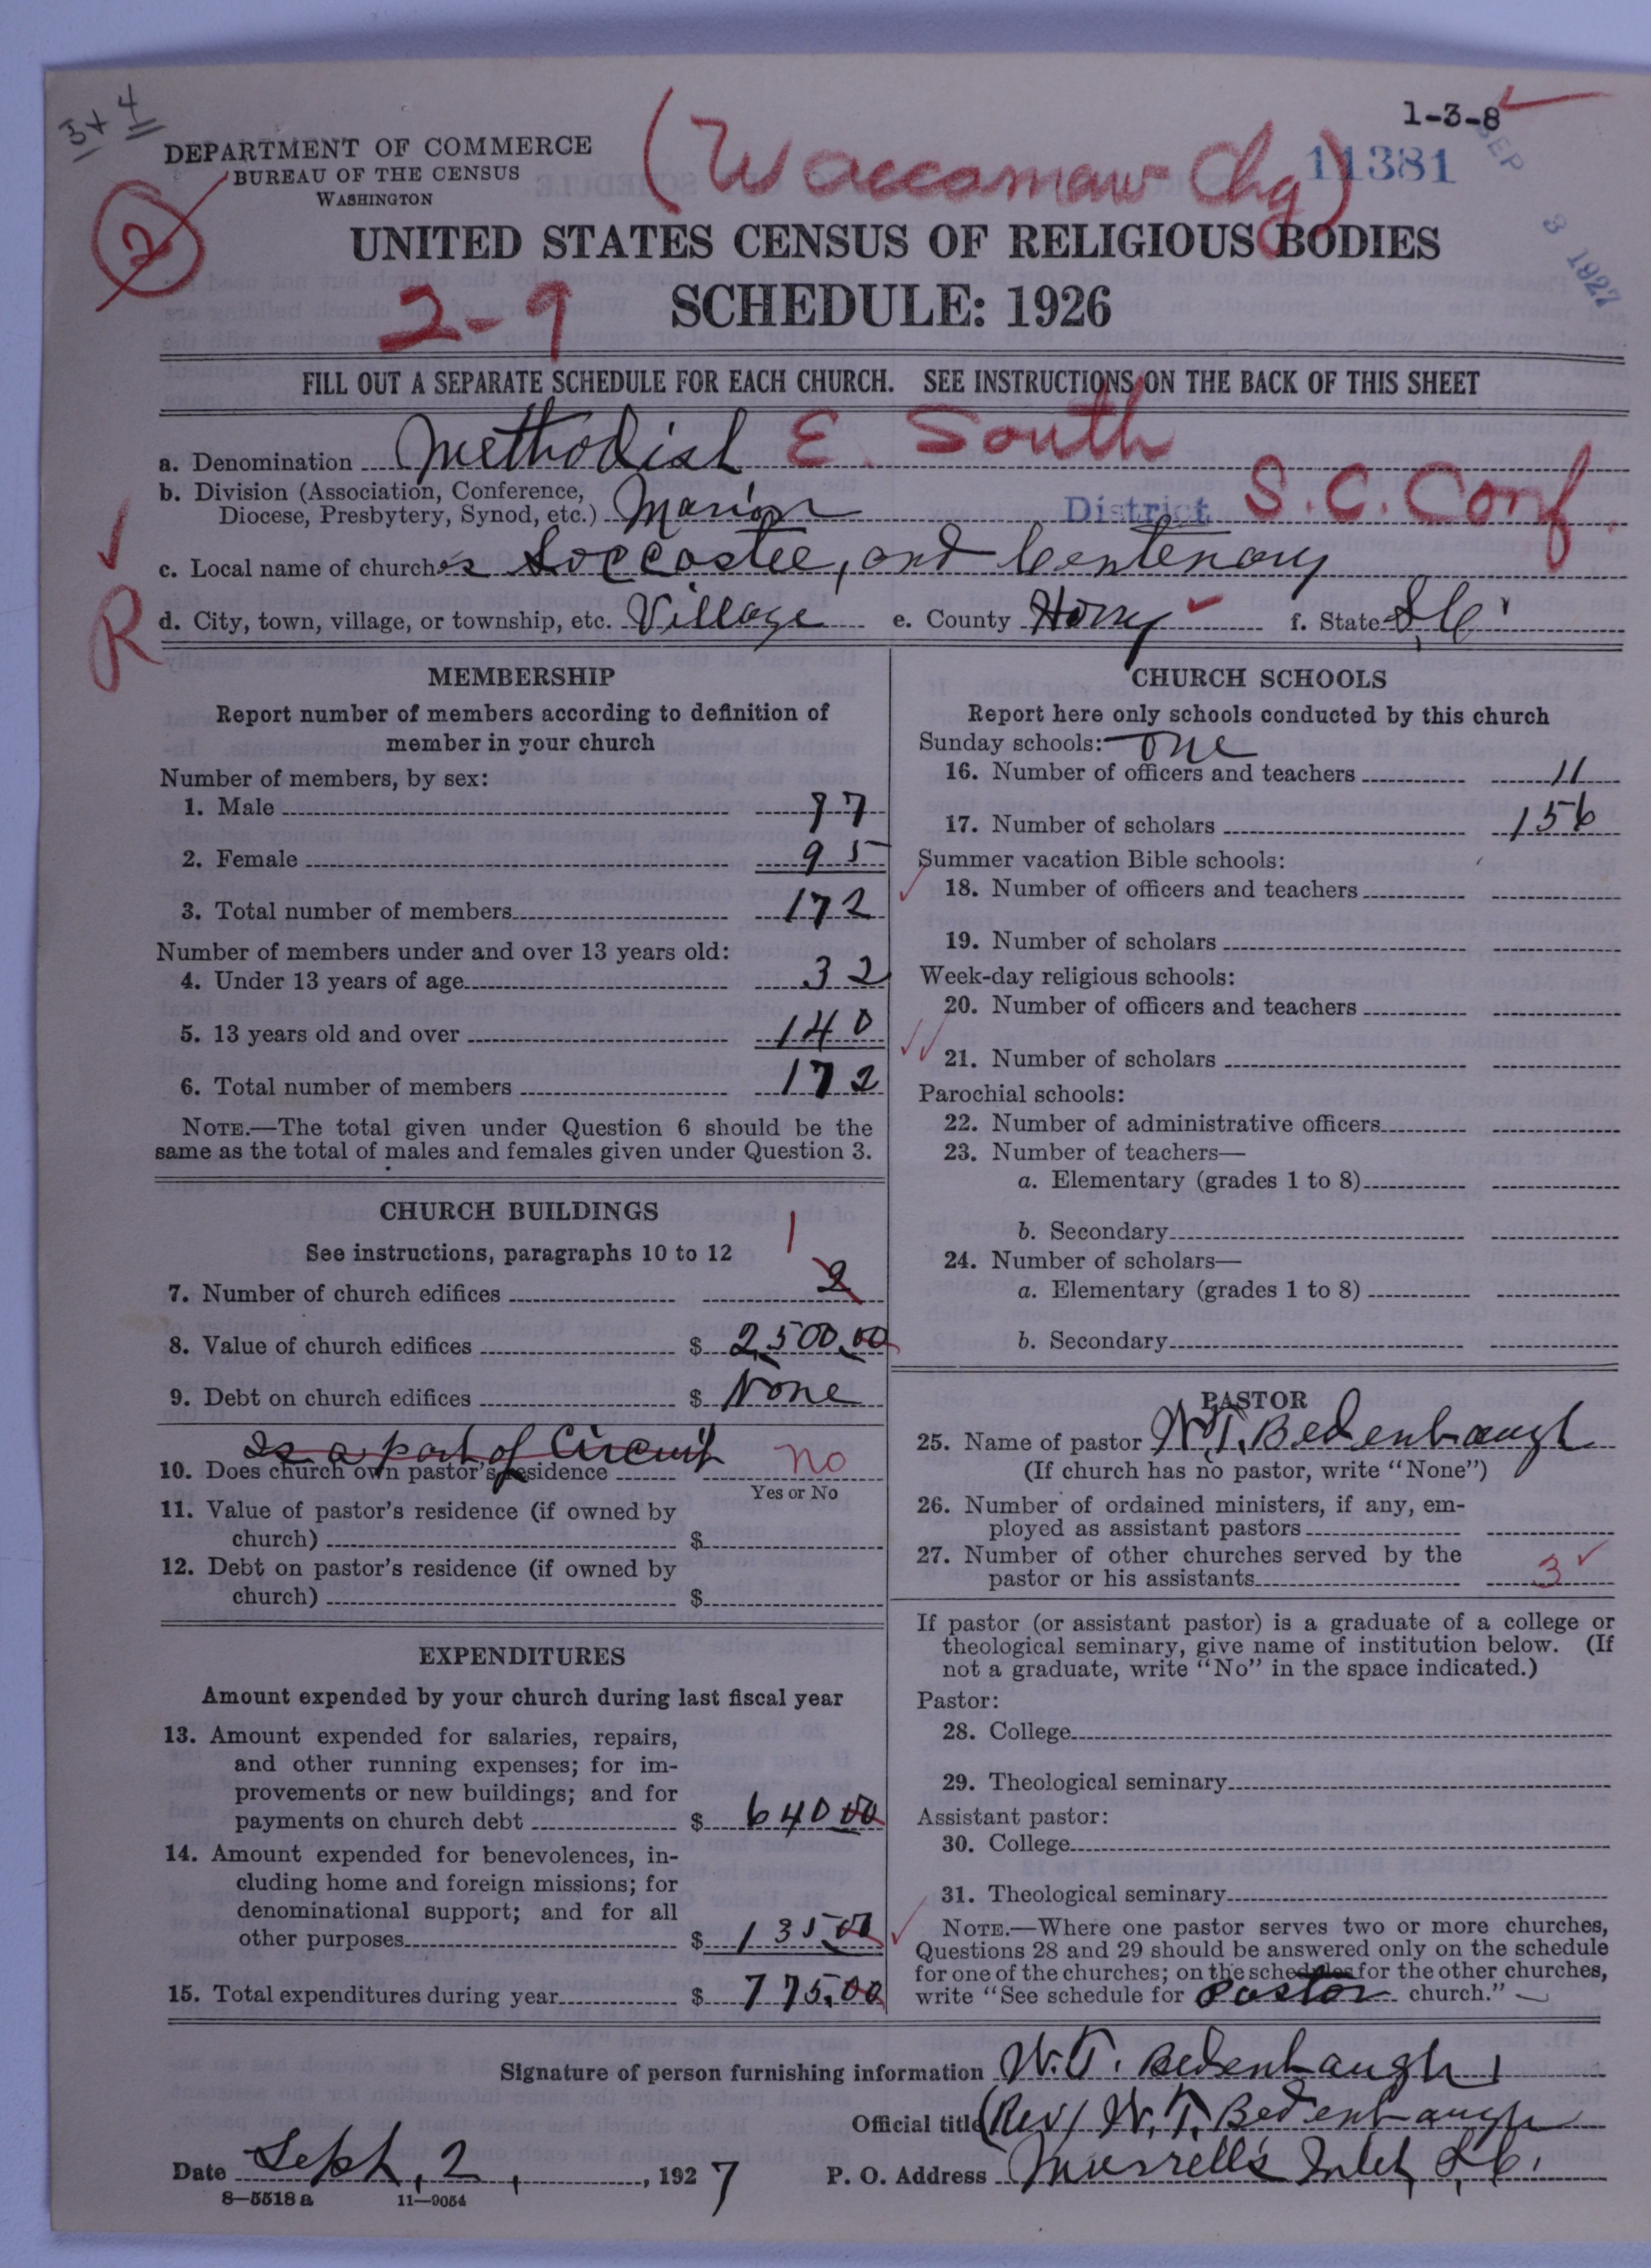 3+4
1-3-8
DEPARTMENT OF COMMERCE
BUREAU OF THE CENSUS
WASHINGTON
(Waccamaw Chg)
11381
SEP 3 1927
2
UNITED STATES CENSUS OF RELIGIOUS BODIES
2-9
SCHEDULE: 1926
FILL OUT A SEPARATE SCHEDULE FOR EACH CHURCH. SEE INSTRUCTIONS ON THE BACK OF THIS SHEET
a. Denomination Methodist E. South
b. Division (Association, Conference,
Diocese, Presbytery, Synod, etc.) Marion District S.C. Conf.
c. Local name of churches Soccastee, and Centenary
R
d. City, town, village, or township, etc. Village e. County Horry f. State S.C.
MEMBERSHIP
Report number of members according to definition of
member in your church
Number of members, by sex:
1. Male 77
2. Female 95
3. Total number of members 172
Number of members under and over 13 years old:
4. Under 13 years of age 32
5. 13 years old and over 140
6. Total number of members 172
NOTE.—The total given under Question 6 should be the
same as the total of males and females given under Question 3.
CHURCH BUILDINGS
See instructions, paragraphs 10 to 12
1
7. Number of church edifices 2
8. Value of church edifices $ 2,500.00
9. Debt on church edifices $ None
Is a part of Circuit
10. Does church own pastor's residence No
Yes or No
11. Value of pastor's residence (if owned by
church) $
12. Debt on pastor's residence (if owned by
church) $
EXPENDITURES
Amount expended by your church during last fiscal year
13. Amount expended for salaries, repairs,
and other running expenses; for im-
provements or new buildings; and for
payments on church debt $ 640 00
14. Amount expended for benevolences, in-
cluding home and foreign missions; for
denominational support; and for all
other purposes $ 135.00
15. Total expenditures during year $ 775.00
CHURCH SCHOOLS
Report here only schools conducted by this church
Sunday schools: One
16. Number of officers and teachers 11
17. Number of scholars 156
Summer vacation Bible schools:
18. Number of officers and teachers
19. Number of scholars
Week-day religious schools:
20. Number of officers and teachers
21. Number of scholars
Parochial schools:
22. Number of administrative officers
23. Number of teachers—
a. Elementary (grades 1 to 8)
b. Secondary
24. Number of scholars—
a. Elementary (grades 1 to 8)
b. Secondary
PASTOR
25. Name of pastor W.T. Bedenbaugh
(If church has no pastor, write "None")
26. Number of ordained ministers, if any, em-
ployed as assistant pastors
27. Number of other churches served by the
pastor or his assistants 3
If pastor (or assistant pastor) is a graduate of a college or
theological seminary, give name of institution below. (If
not a graduate, write "No" in the space indicated.)
Pastor:
28. College
29. Theological seminary
Assistant pastor:
30. College
31. Theological seminary
NOTE.—Where one pastor serves two or more churches,
Questions 28 and 29 should be answered only on the schedule
for one of the churches; on the schedules for the other churches,
write "See schedule for Pastor church."
Signature of person furnishing information W.T. Bedenbaugh
Official title (Rev) W.T. Bedenbaugh
Date Sept, 2, 1927 P. O. Address Murrell's Inlet, S.C.
8—5518 a 11—9054